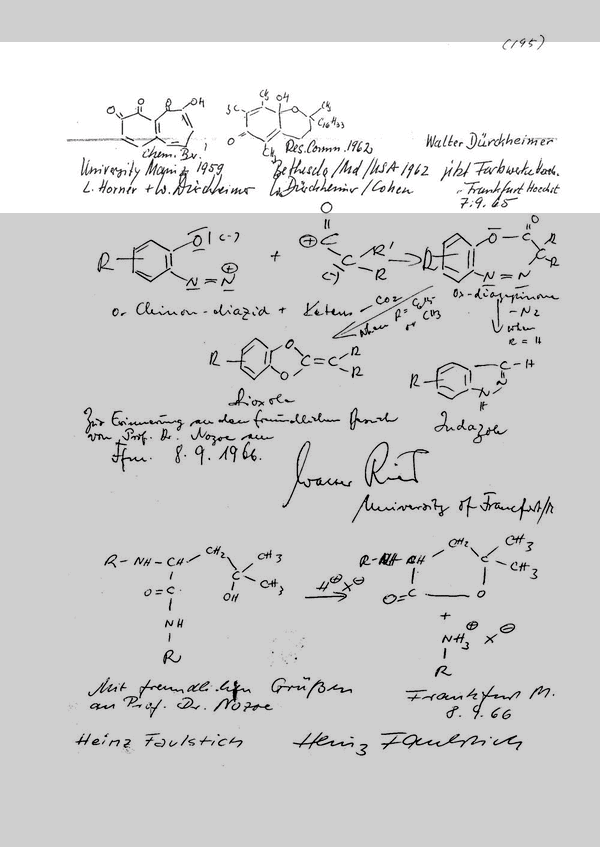 (195)
Chem. Ber.
University Mainz 1959
L. Horner + W. Dürckheimer
Res. Comm. 1962
Bethesda/Md/USA 1962
Dürckheimer/Cohen
Walter Dürckheimer
jetzt Farbwerke Hoechst
Frankfurt Hoechst
7.9.65
o-Chinon-diazid + Ketene
- CO2
when R = C6H5
or CH3
Ox-diazepinone
- N2
when
R = H
Dioxole
Indazole
Zur Erinnerung an den freundlichen Besuch
von Prof. Dr. Nozoe am
Ffm. 8.9.1966.
Walter Ried
University of Francfort/M
R-NH-CH
CH2
CH3
CH3
OH
O=C
NH
R
H⊕X⊖
CH2
CH3
CH3
O=C
O
+
NH3⊕ X⊖
R
Mit freundlichen Grüßen
an Prof. Dr. Nozoe
Frankfurt M.
8.9.66
Heinz Faulstich Heinz Faulstich